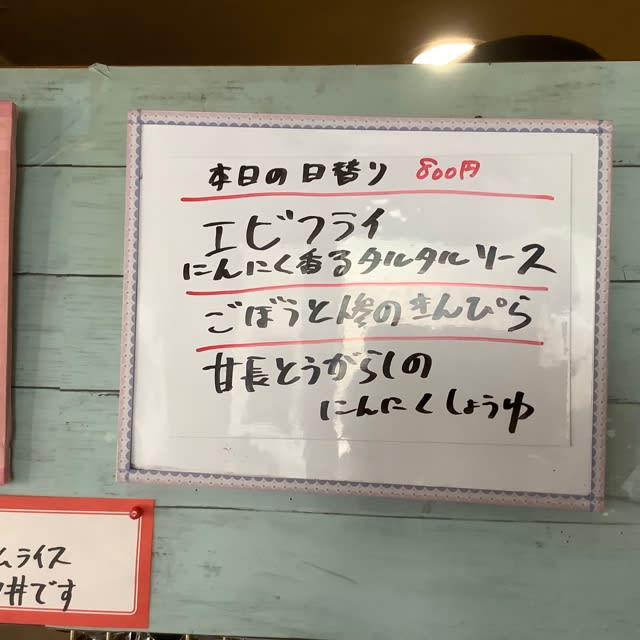 本日の日替り 800円
エビフライ
にんにく香るタルタルソース
ごぼうと惨のきんぴら
甘長とうがらしの
にんにくしょうゆ
ムライス
丼です